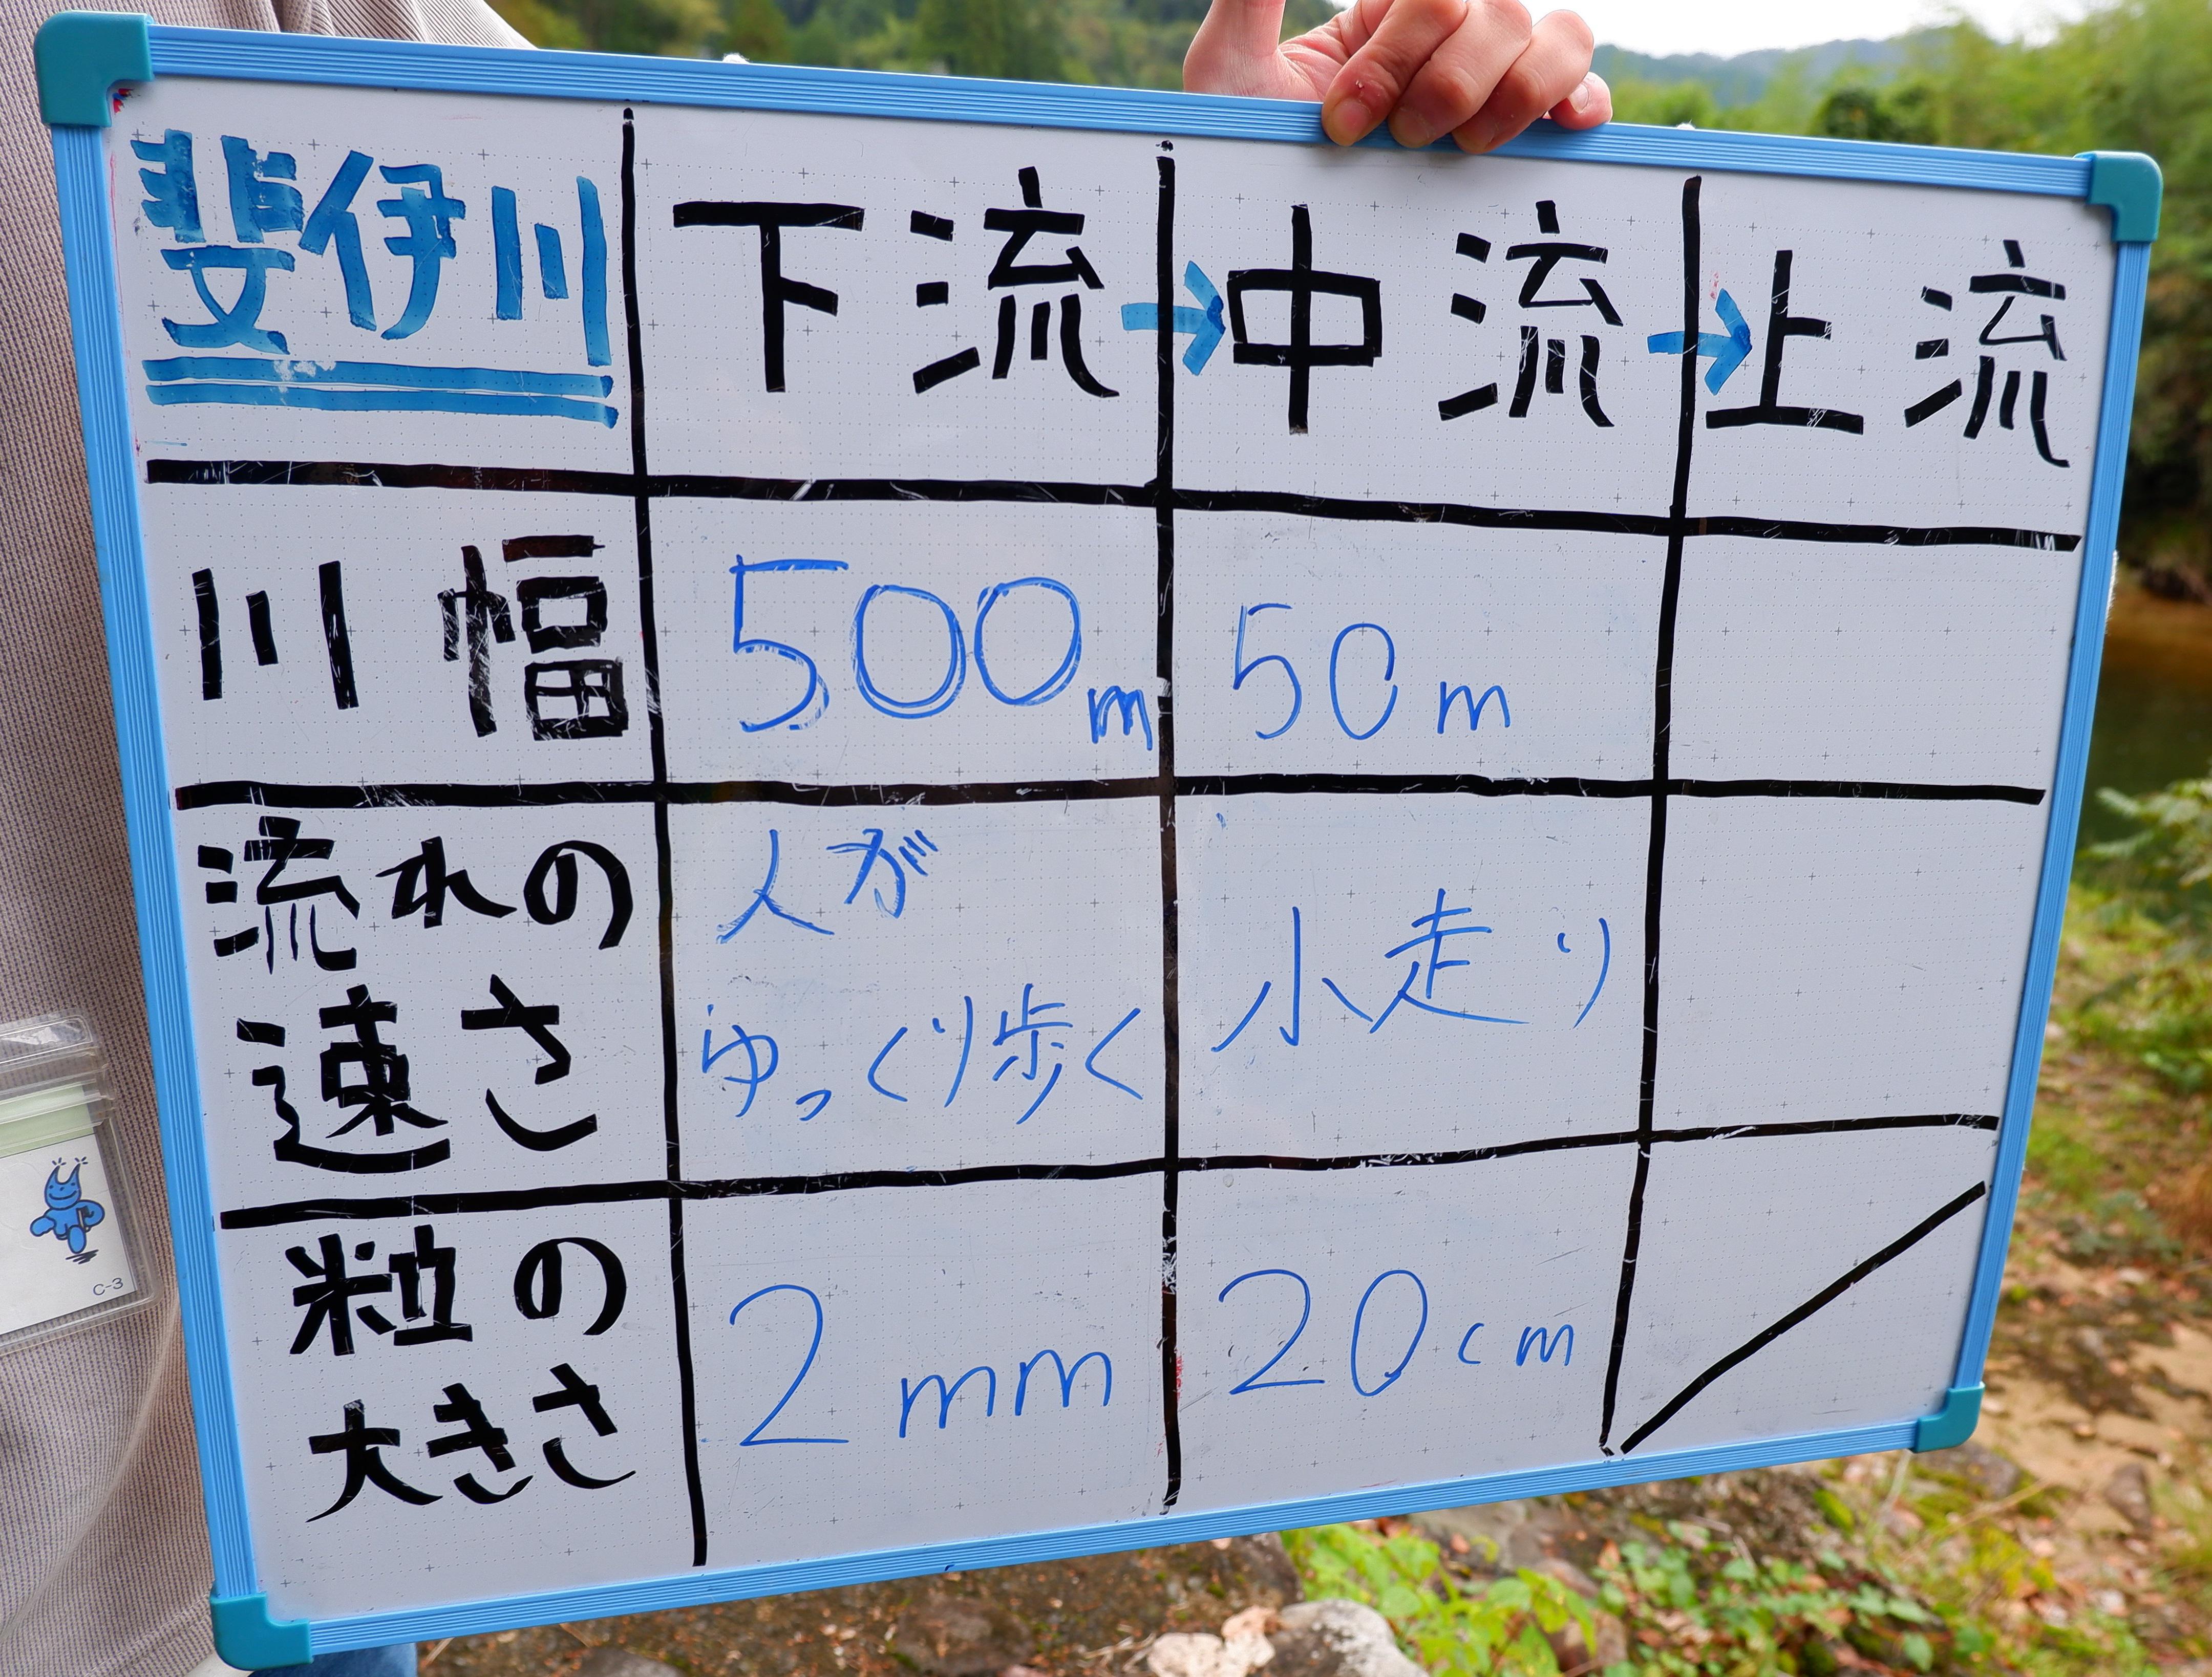 斐伊川 下流 → 中流 → 上流
川幅 500m 50m
流れの
速さ
人が
ゆっくり歩く
小走り
粒の
大きさ
2mm 20cm
C-3